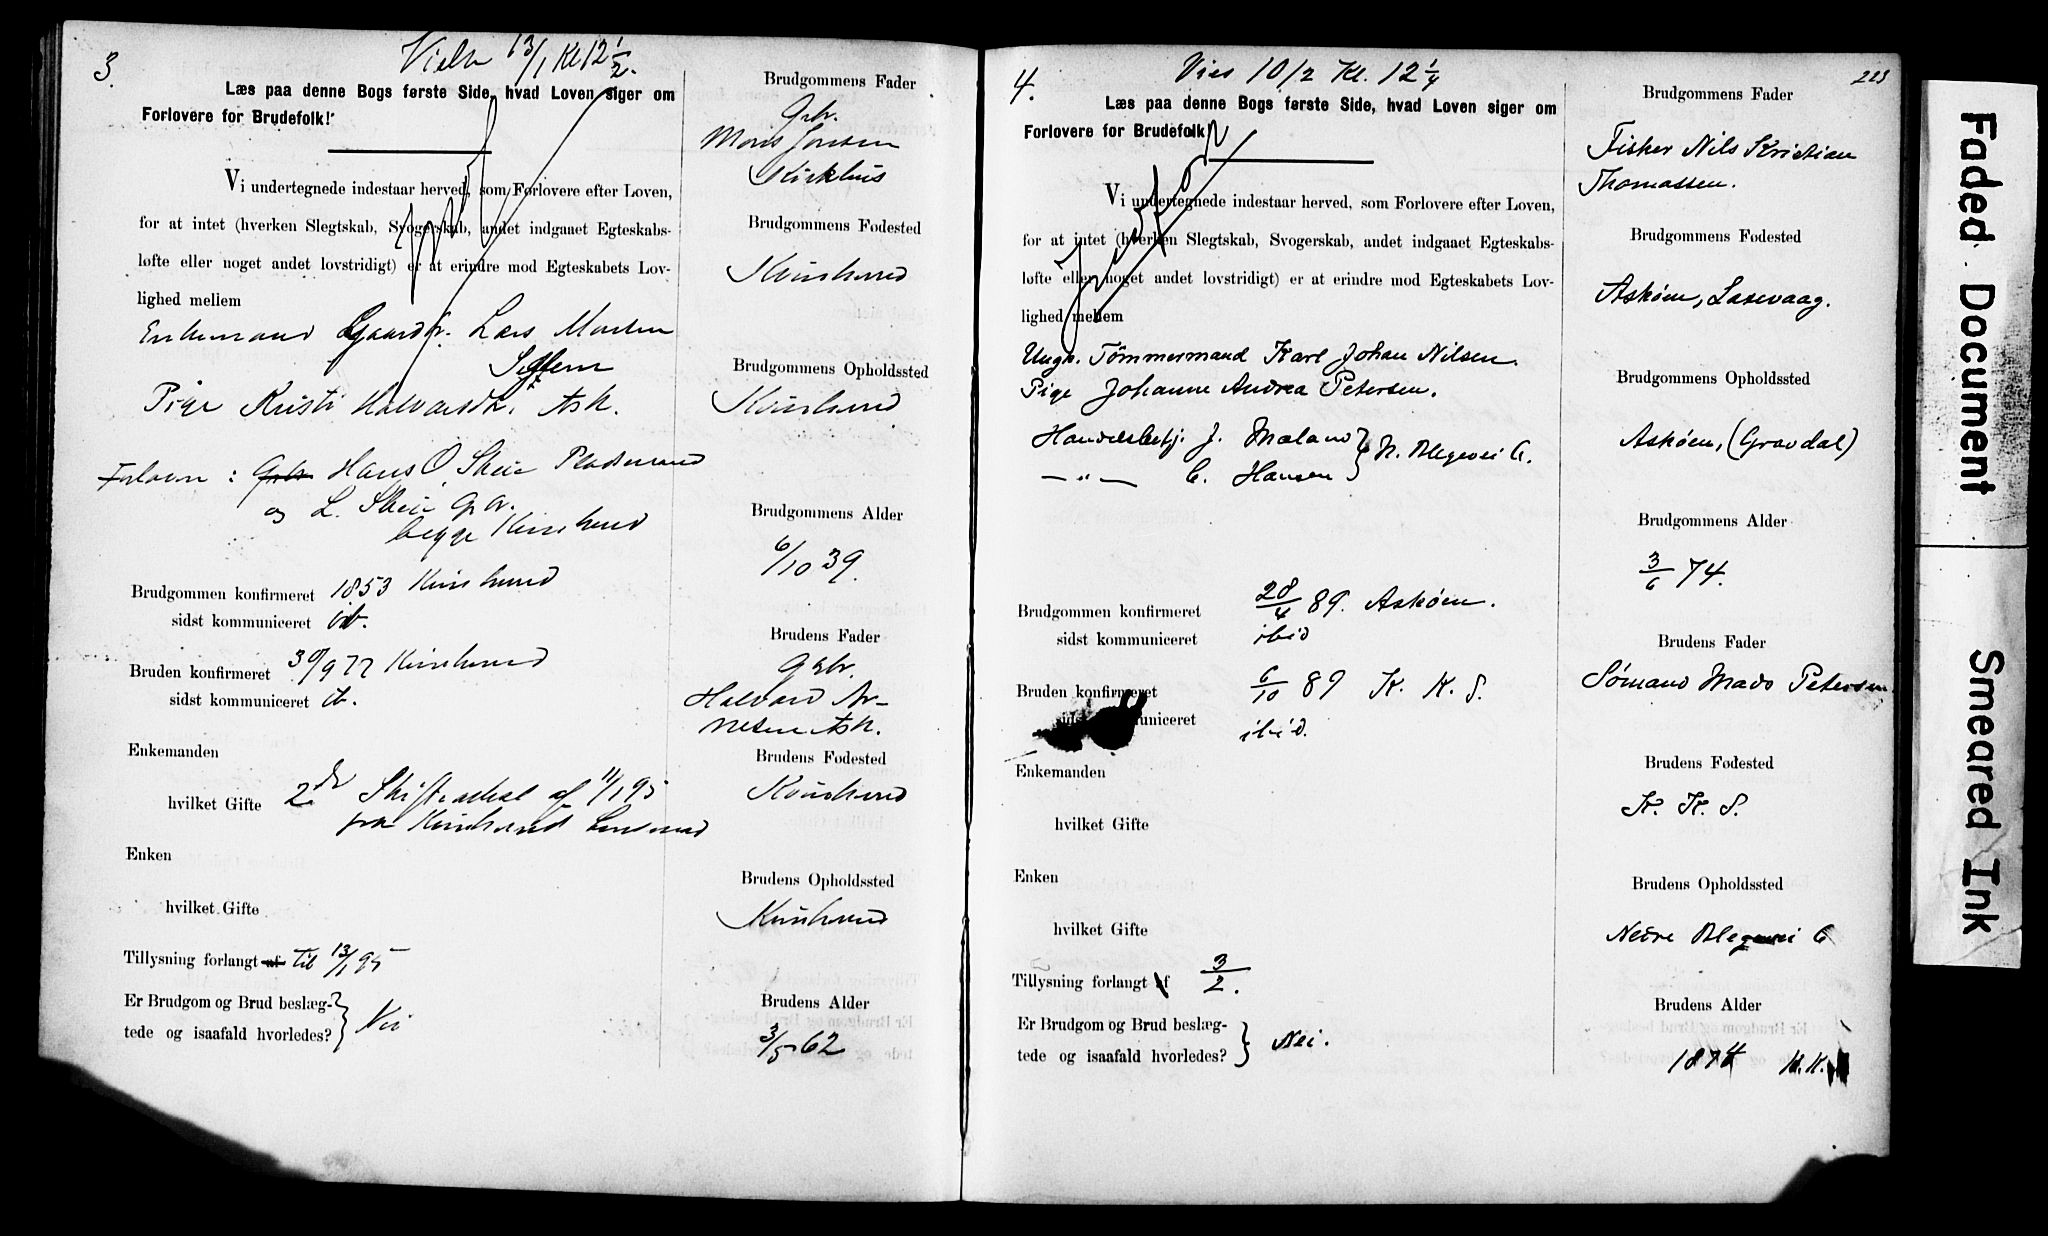 3.
Vielse 13/1 Kl 12 1/2.
Læs paa denne Bogs første Side, hvad Loven siger om
Forlovere for Brudefolk!
Vi undertegnede indestaar herved, som Forlovere efter Loven,
for at intet (hverken Slegtskab, Svogerskab, andet indgaaet Egteskabs-
løfte eller noget andet lovstridigt) er at erindre mod Egteskabets Lov-
lighed mellem
Enkemand Gaardbr. Lars Monsen
Pige Kristi Halvorsdtr. Ask.
Forlovere : Hans O. Skeie Pladsmand
og L. Skeie Gbr.
begge Kvinherred
Brudgommen konfirmeret 1853 Kvinherred
sidst kommuniceret ib.
Bruden konfirmeret 30/9 77 Kvinherred
sidst kommuniceret ib.
Enkemanden
hvilket Gifte 2det Skifteattest af 11/1 95
fra Kvinherred Lensmand
Enken
hvilket Gifte
Tillysning forlangt af til 13/1 95
Er Brudgom og Brud beslæg-
tede og isaafald hvorledes? Nei
Brudgommens Fader
Gbr.
Mons Jonsen
Kirkhus
Brudgommens Fødested
Kvinherred
Brudgommens Opholdssted
Kvinherred
Brudgommens Alder
6/10 39.
Brudens Fader
Gbr.
Halvard Ar-
nesen Ask.
Brudens Fødested
Kvinherred
Brudens Opholdssted
Kvinherred
Brudens Alder
3/5 62
4.
Vies 10/2 Kl. 12 1/4
223
Læs paa denne Bogs første Side, hvad Loven siger om
Forlovere for Brudefolk!
Vi undertegnede indestaar herved, som Forlovere efter Loven,
for at intet (hverken Slegtskab, Svogerskab, andet indgaaet Egteskabs-
løfte eller noget andet lovstridigt) er at erindre mod Egteskabets Lov-
lighed mellem
Ungk. Tømmermand Karl Johan Nilsen.
Pige Johanne Andrea Petersen.
Handelsbetj. J. Mæland } N. Blegevei 6.
— " — C. Hansen
Brudgommen konfirmeret 28/4 89. Askøen.
sidst kommuniceret ibid
Bruden konfirmeret 6/10 89 K. K. S.
sidst kommuniceret ibid.
Enkemanden
hvilket Gifte
Enken
hvilket Gifte
Tillysning forlangt af 3/2.
Er Brudgom og Brud beslæg-
tede og isaafald hvorledes? Nei.
Brudgommens Fader
Fisker Nils Kristian
Thomassen.
Brudgommens Fødested
Askøen, Laxevaag.
Brudgommens Opholdssted
Askøen, (Gravdal)
Brudgommens Alder
3/6 74.
Brudens Fader
Sømand Mads Petersen
Brudens Fødested
K. K. S.
Brudens Opholdssted
Nedre Blegevei 6
Brudens Alder
1874 K.K.
Faded Document
Smeared Ink